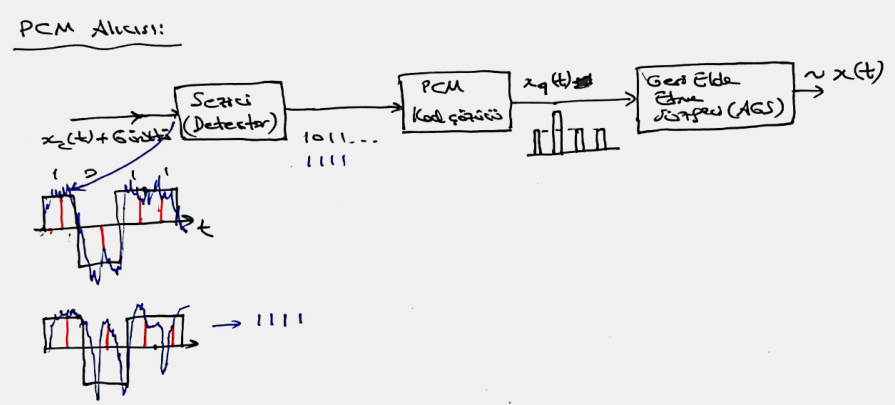 PCM Alıcısı:
x_c(t) + Gürültü
Sezici
(Detector)
1011...
1111
PCM
Kod çözücü
x_q(t)
Geri Elde
Etme
Süzgeci (AGS)
~ x(t)
1 0 1 1
t
→ 1111